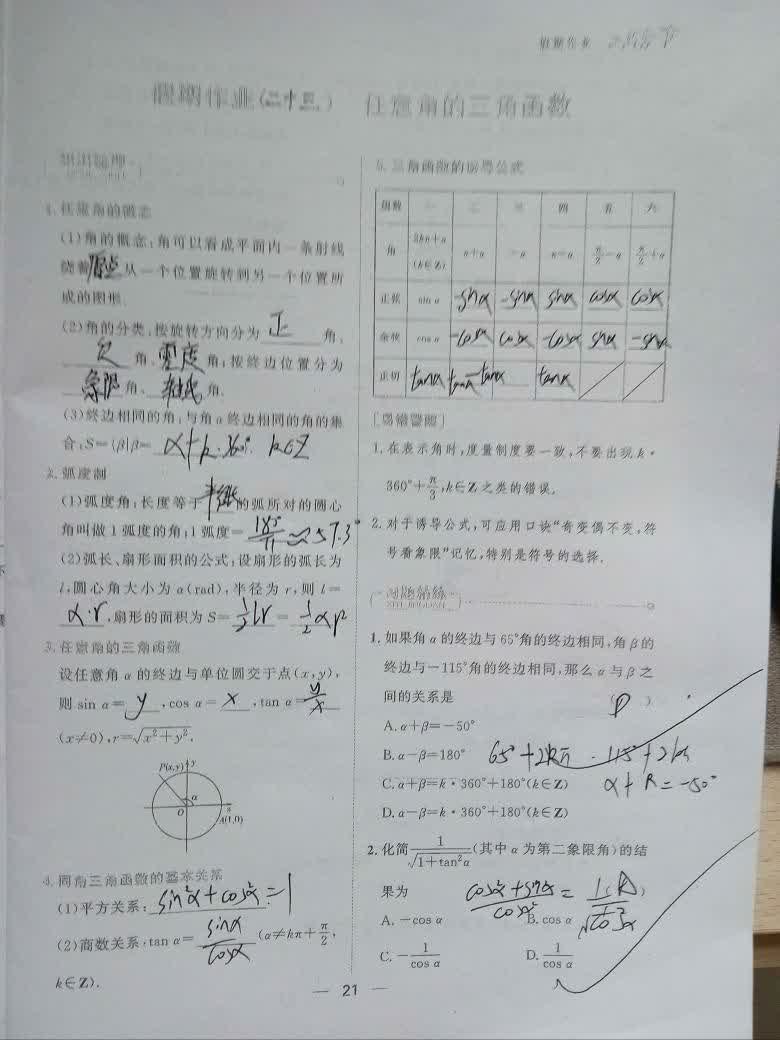 假期作业
假期作业(二十三) 任意角的三角函数
知识梳理
1.任意角的概念
(1)角的概念:角可以看成平面内一条射线
绕着原点从一个位置旋转到另一个位置所
成的图形.
(2)角的分类:按旋转方向分为 正 角、
负 角、零度角;按终边位置分为
象限角、轴线角.
(3)终边相同的角:与角α终边相同的角的集
合:S={β|β= α+k·360°. k∈Z
2.弧度制
(1)弧度角:长度等于半径的弧所对的圆心
角叫做1弧度的角;1弧度= 180°/π ≈57.3°
(2)弧长、扇形面积的公式:设扇形的弧长为
l,圆心角大小为α(rad),半径为r,则l=
α·r,扇形的面积为S= 1/2 lr = 1/2 αr²
3.任意角的三角函数
设任意角α的终边与单位圆交于点(x,y),
则sin α= y ,cos α= x ,tan α= y/x
(x≠0),r=√(x²+y²).
P(x,y) y
α
O x
A(1,0)
4.同角三角函数的基本关系
(1)平方关系: sin²α+cos²α=1
(2)商数关系:tan α= sinα/cosα (α≠kπ+π/2,
k∈Z).
5.三角函数的诱导公式
函数 一 二 三 四 五 六
角 2kπ+α(k∈Z) π+α -α π-α π/2-α π/2+α
正弦 sin α -sinα -sinα sinα cosα cosα
余弦 cos α -cosα cosα -cosα sinα -sinα
正切 tanα tanα -tanα tanα
[易错警醒]
1.在表示角时,度量制度要一致,不要出现k·
360°+π/3,k∈Z之类的错误.
2.对于诱导公式,可应用口诀“奇变偶不变,符
号看象限”记忆,特别是符号的选择.
习题精练
XITI JINGLIAN
1.如果角α的终边与65°角的终边相同,角β的
终边与-115°角的终边相同,那么α与β之
间的关系是 ( D )
A.α+β=-50°
B.α-β=180° 65°+2kπ
C.α+β=k·360°+180°(k∈Z)
D.α-β=k·360°+180°(k∈Z)
2.化简 1/√(1+tan²α) (其中α为第二象限角)的结
果为 ( A )
A.-cos α B.cos α
C.-1/cos α D.1/cos α
— 21 —